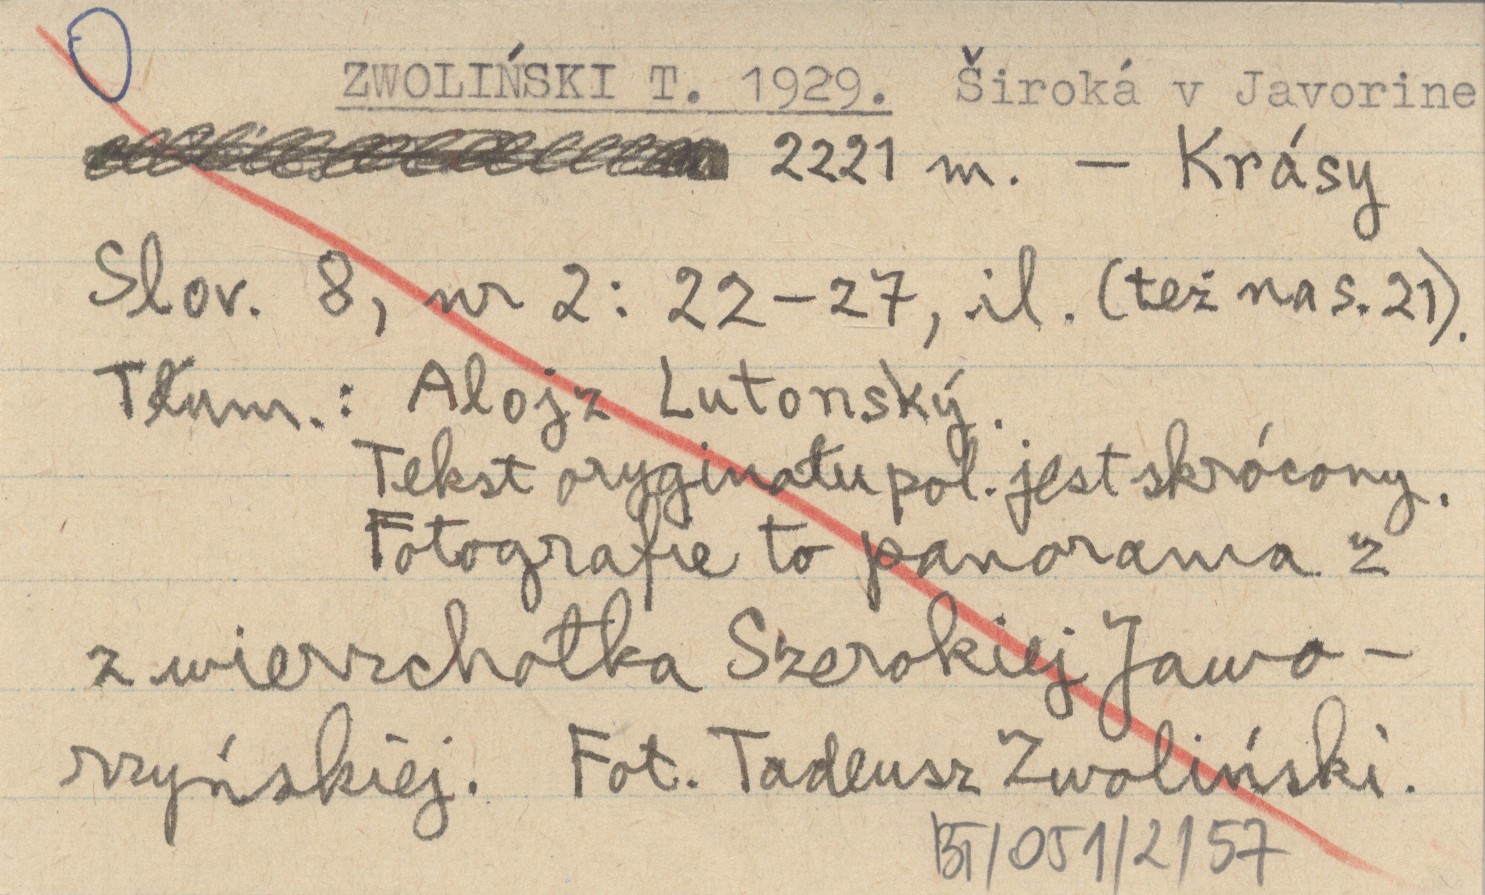 ZWOLIŃSKI T. 1929. Široká v Javorine
2221 m. — Krásy
Slov. 8, nr 2: 22-27, il. (też na s. 21).
Tłum.: Alojz Lutonský.
Tekst oryginału pol. jest skrócony.
Fotografie to panorama z
z wierzchołka Szerokiej Jawo-
rzyńskiej. Fot. Tadeusz Zwoliński.
BT/051/2157